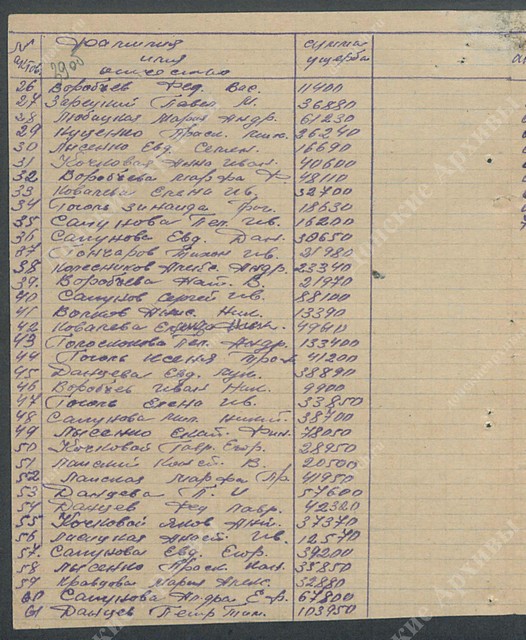 № актов фамилия имя отчество сумма ущерба
3900
26 Воробьев Фед. Вас. 11400
27 Зарецкий Павел М. 36880
28 Любицкая Мария Андр. 61230
29 Куценко Праск. 36240
30 Лысенко Евд. Семен. 16690
31 Кочковая Анна Иван. 40600
32 Воробьева Марфа Ф. 48110
33 Ковалева Елена Ив. 32700
34 Гоголь Зинаида 18630
35 Сапунова Пел. Ив. 16200
36 Сапунова Евд. Дан. 30650
37 Гончаров Тихон Ив. 21980
38 Колесников Андр. 23340
39. Воробьева Нат. В. 21970
40 Сапунов Сергей Ив. 88100
41 Волков Ник. 13390
42 Ковалева 49410
43 Пел. Андр. 133400
44 Гоголь Ксения Прох 41200
45 Данцева Евд. 38890
46 Воробьев Иван Ник. 9900
47 Гоголь Елена Ив. 33850
48 Сапунова Никит. 38700
49 Лысенко Екат. 78050
50 Кочковой Гавр. Егор. 28950
51 Ланский В. 20500
52 Ланская Марфа Пр. 41950
53 Данцева П. И 57600
54 Данцев Фед Лавр. 42320
55 Кочковой Яков 37370
56 Ив. 12570
57. Сапунова Евд. Егор. 39200
58 Лысенко Праск 35850
59 Кравцова Мария 52880
60 Сапунова Е. 67800
61 Данцев Петр Тим. 103950